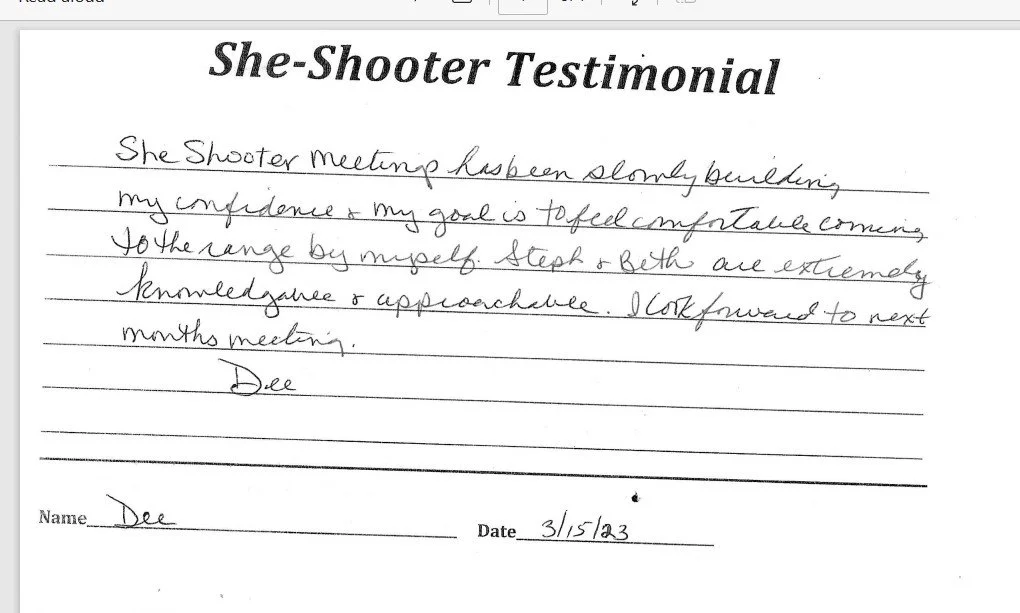 She-Shooter Testimonial
She Shooter meeting has been slowly building
my confidence & my goal is to feel comfortable coming
to the range by myself. Steph & Beth are extremely
knowledgable & approachable. I look forward to next
months meeting.
Dee
Name Dee
Date 3/15/23